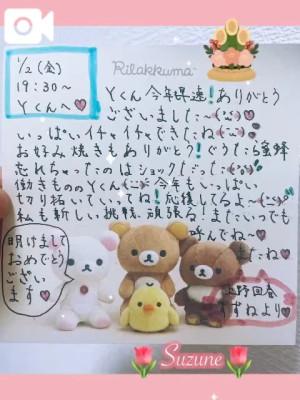 1/2(金)
19:30〜
Yくんへ♥
Rilakkuma
Yくん今年早速!ありがとう
ございました〜
いっぱいイチャイチャできたね
お好み焼きもありがとう!ぐうたら蜜蜂
忘れちゃったのはショックだった
働きもののYくん 今年もいっぱい
切り拓いていってね!応援してるよ〜
私も新しい挑戦、頑張る!またいつでも
呼んでね〜♥
またね♥
明けまして
おめでとう
ござい
ます♥
上野回春
すずねより♥
Suzune